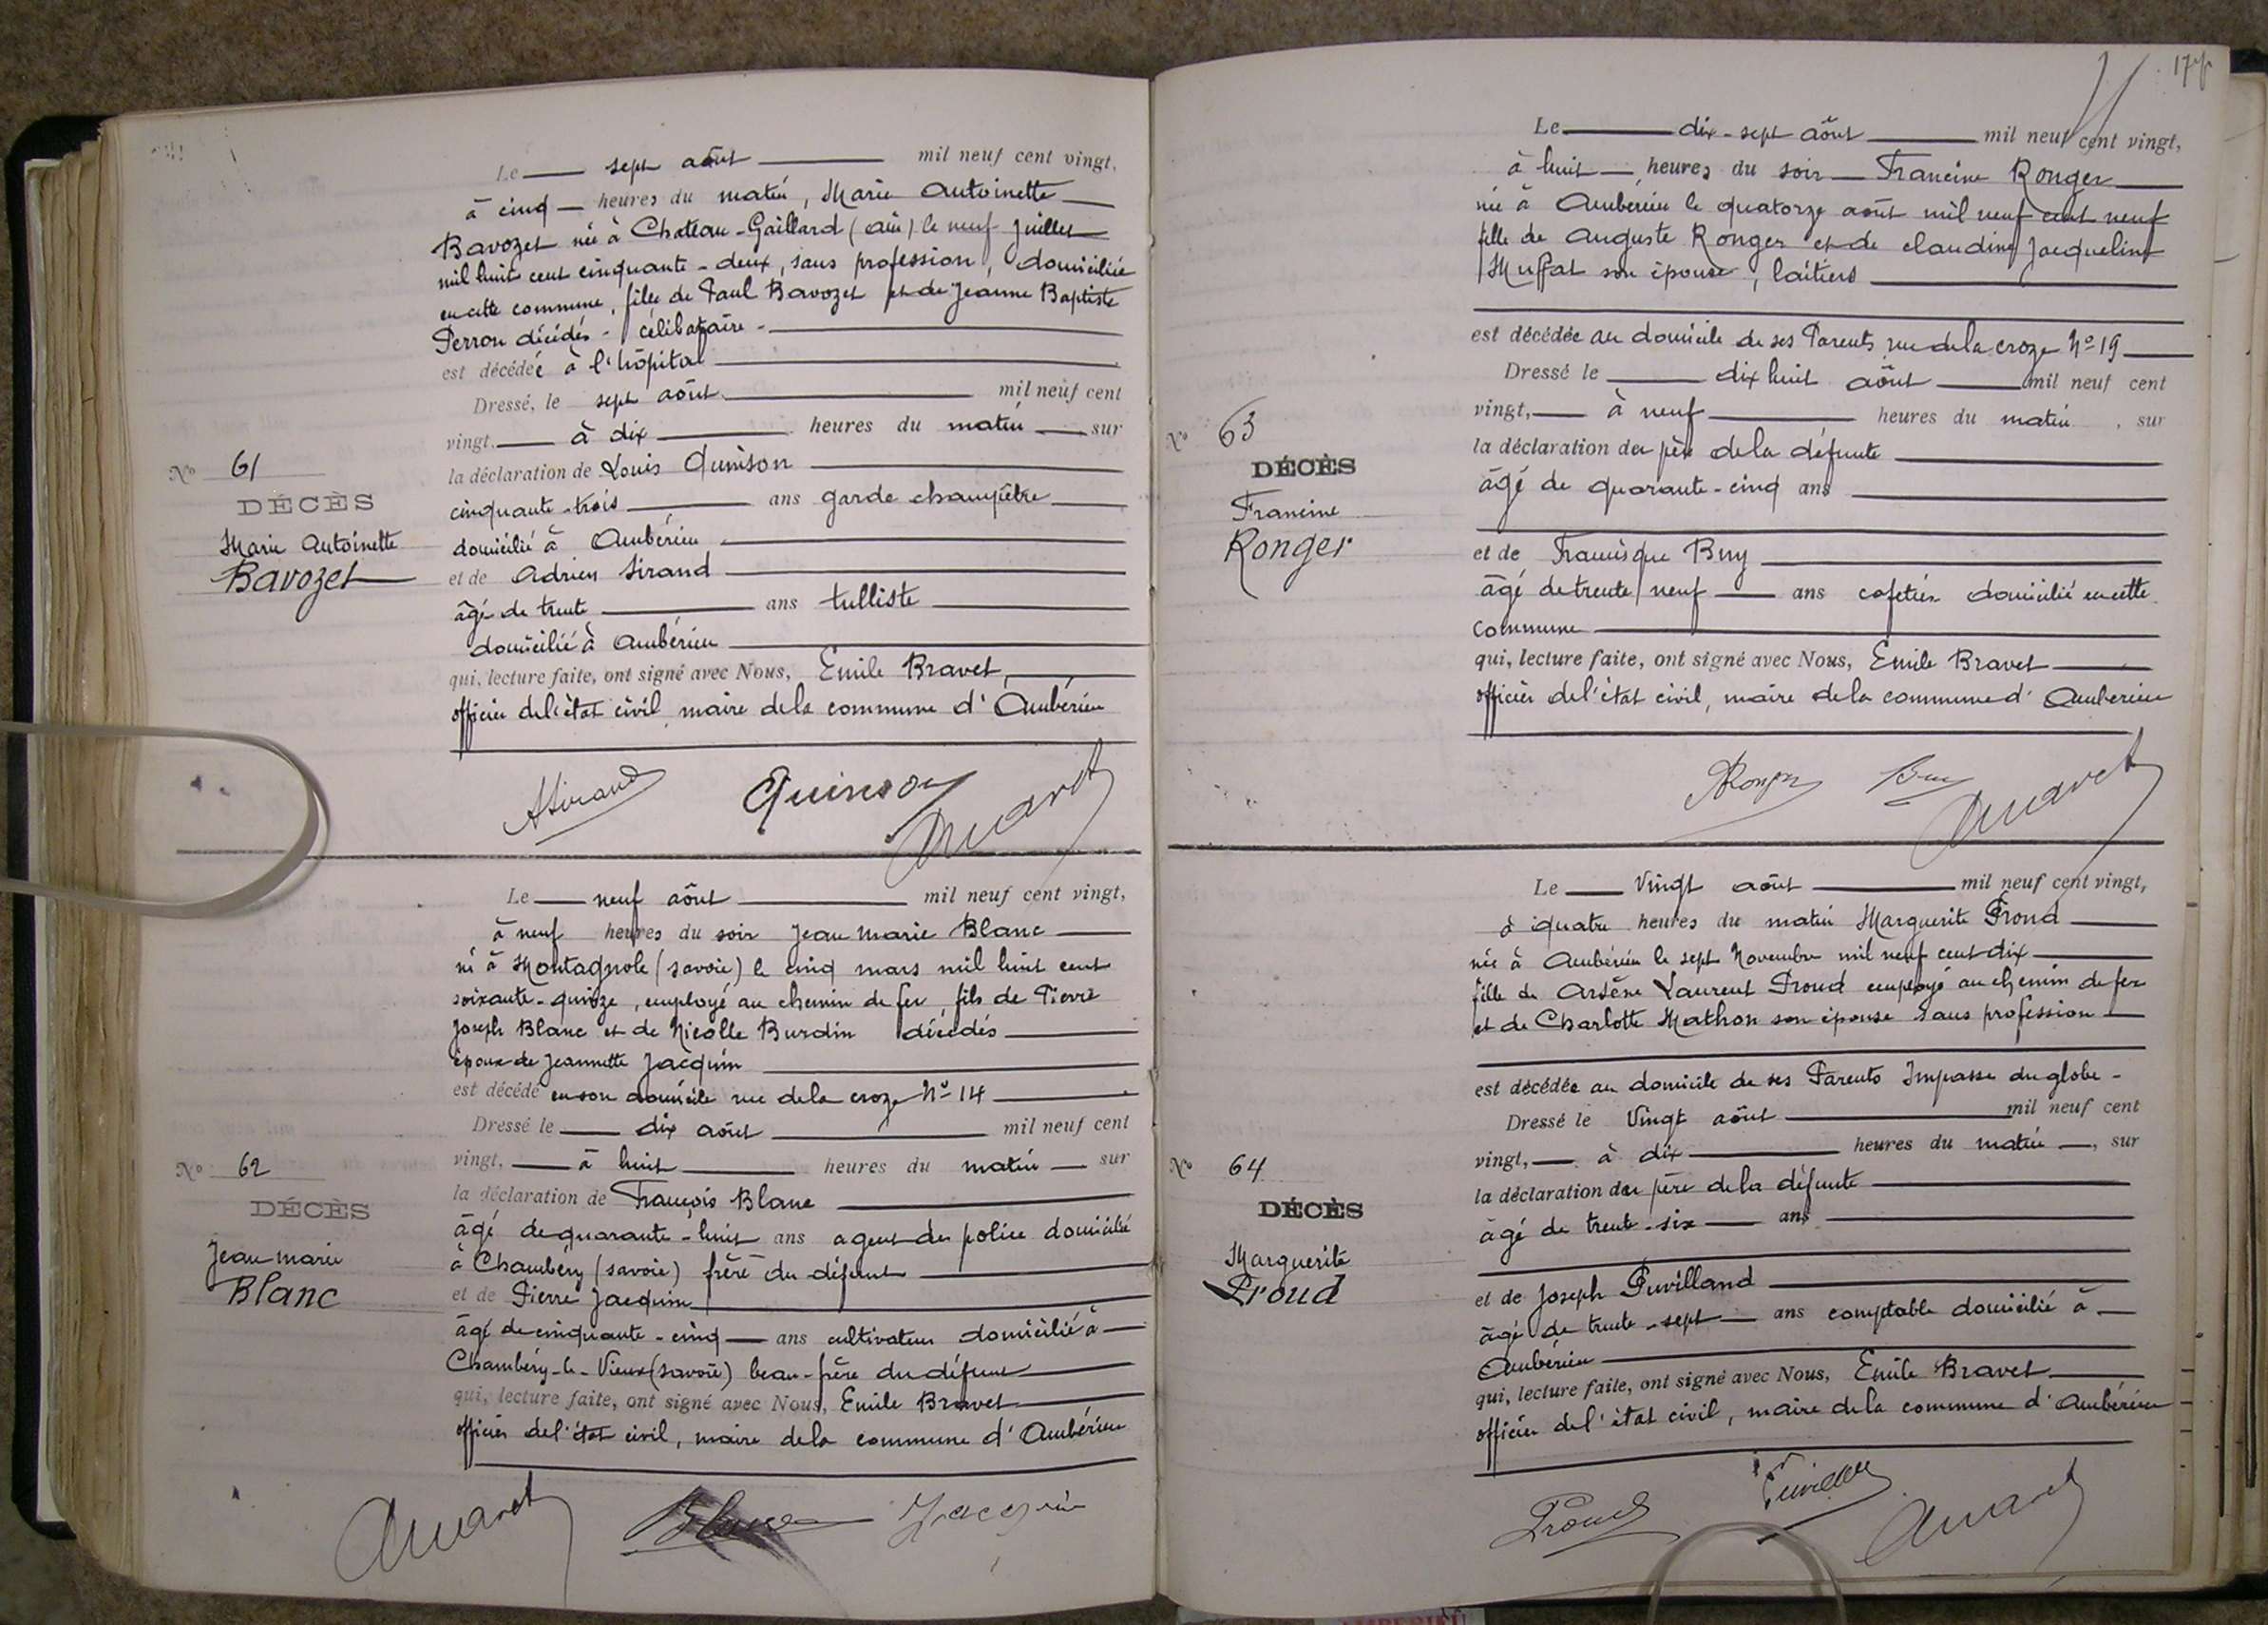 Le sept août mil neuf cent vingt,
à cinq heures du matin, Marie Antoinette
Bavozet née à Chateau-Gaillard (ain) le neuf Juillet
mil huit cent cinquante-deux, sans profession, domiciliée
en cette commune, fille de Paul Bavozet et de Jeanne Baptiste
Perron décédés - célibataire -
est décédée à l'hôpital
Dressé, le sept août mil neuf cent
vingt, à dix heures du matin sur
la déclaration de Louis Quinson
cinquante-trois ans garde champêtre
domicilié à Ambérieu
et de Adrien Sirand
âgé de trente ans tulliste
domicilié à Ambérieu
qui, lecture faite, ont signé avec Nous, Emile Bravet,
officier de l'état civil, maire de la commune d'Ambérieu
No 61
DÉCÈS
Marie Antoinette
Bavozet
ASirand Quinson
Le neuf août mil neuf cent vingt,
à neuf heures du soir Jean Marie Blanc
né à Montagnole (savoie) le cinq mars mil huit cent
soixante-quinze, employé au chemin de fer, fils de Pierre
Joseph Blanc et de Nicolle Burdin décédés
époux de Jeannette Jacquin
est décédé en son domicile rue de la croze No 14
Dressé le dix août mil neuf cent
vingt, à huit heures du matin sur
la déclaration de François Blanc
âgé de quarante-huit ans agent de police domicilié
à Chambéry (savoie) frère du défunt
et de Pierre Jacquin
âgé de cinquante-cinq ans cultivateur domicilié à
Chambéry-le-Vieux (savoie) beau-frère du défunt
qui, lecture faite, ont signé avec Nous, Emile Bravet
officier de l'état civil, maire de la commune d'Ambérieu
No 62
DÉCÈS
Jean marie
Blanc
Blanc Jacquin
Le dix-sept août mil neuf cent vingt,
à huit heures du soir Francine Ronger
née à Ambérieu le quatorze août mil neuf cent neuf
fille de Auguste Ronger et de claudine Jacqueline
Muffat son épouse, laitiers
est décédée au domicile de ses Parents rue de la croze No 19
Dressé le dix huit août mil neuf cent
vingt, à neuf heures du matin, sur
la déclaration du père de la défunte
âgé de quarante-cinq ans
et de Francisque Buy
âgé de trente neuf ans cafetier domicilié en cette
commune
qui, lecture faite, ont signé avec Nous, Emile Bravet
officier de l'état civil, maire de la commune d'Ambérieu
No 63
DÉCÈS
Francine
Ronger
Ronger Buy
Le Vingt août mil neuf cent vingt,
à quatre heures du matin Marguerite Proud
née à Ambérieu le sept Novembre mil neuf cent dix
fille de Arsène Laurent Proud employé au chemin de fer
et de Charlotte Mathon son épouse sans profession
est décédée au domicile de ses Parents Impasse du globe -
Dressé le Vingt août mil neuf cent
vingt, à dix heures du matin, sur
la déclaration du père de la défunte
âgé de trente-six ans
et de Joseph Puvilland
âgé de trente-sept ans comptable domicilié à
Ambérieu
qui, lecture faite, ont signé avec Nous, Emile Bravet
officier de l'état civil, maire de la commune d'Ambérieu
No 64
DÉCÈS
Marguerite
Proud
Proud